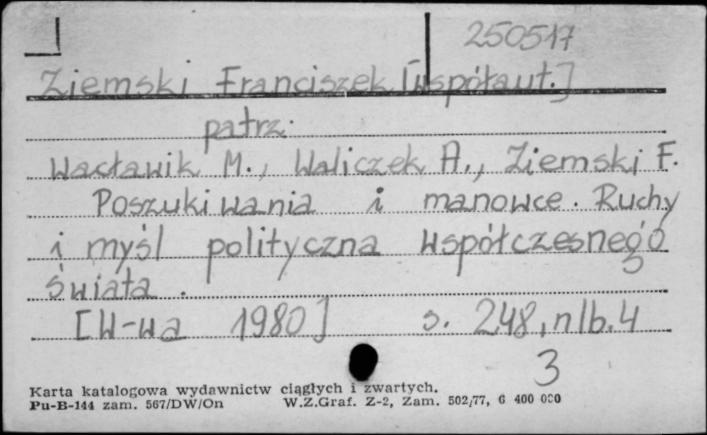 250517
Ziemski Franciszek [współaut.]
patrz.
Wacławik M., Waliczek A., Ziemski F.
Poszukiwania i manowce. Ruchy
i myśl polityczna współczesnego
świata.
[W-wa 1980] s. 248, nlb. 4
3
Karta katalogowa wydawnictw ciągłych i zwartych.
Pu-B-144 zam. 567/DW/On W.Z.Graf. Z-2, Zam. 502/77, 6 400 000